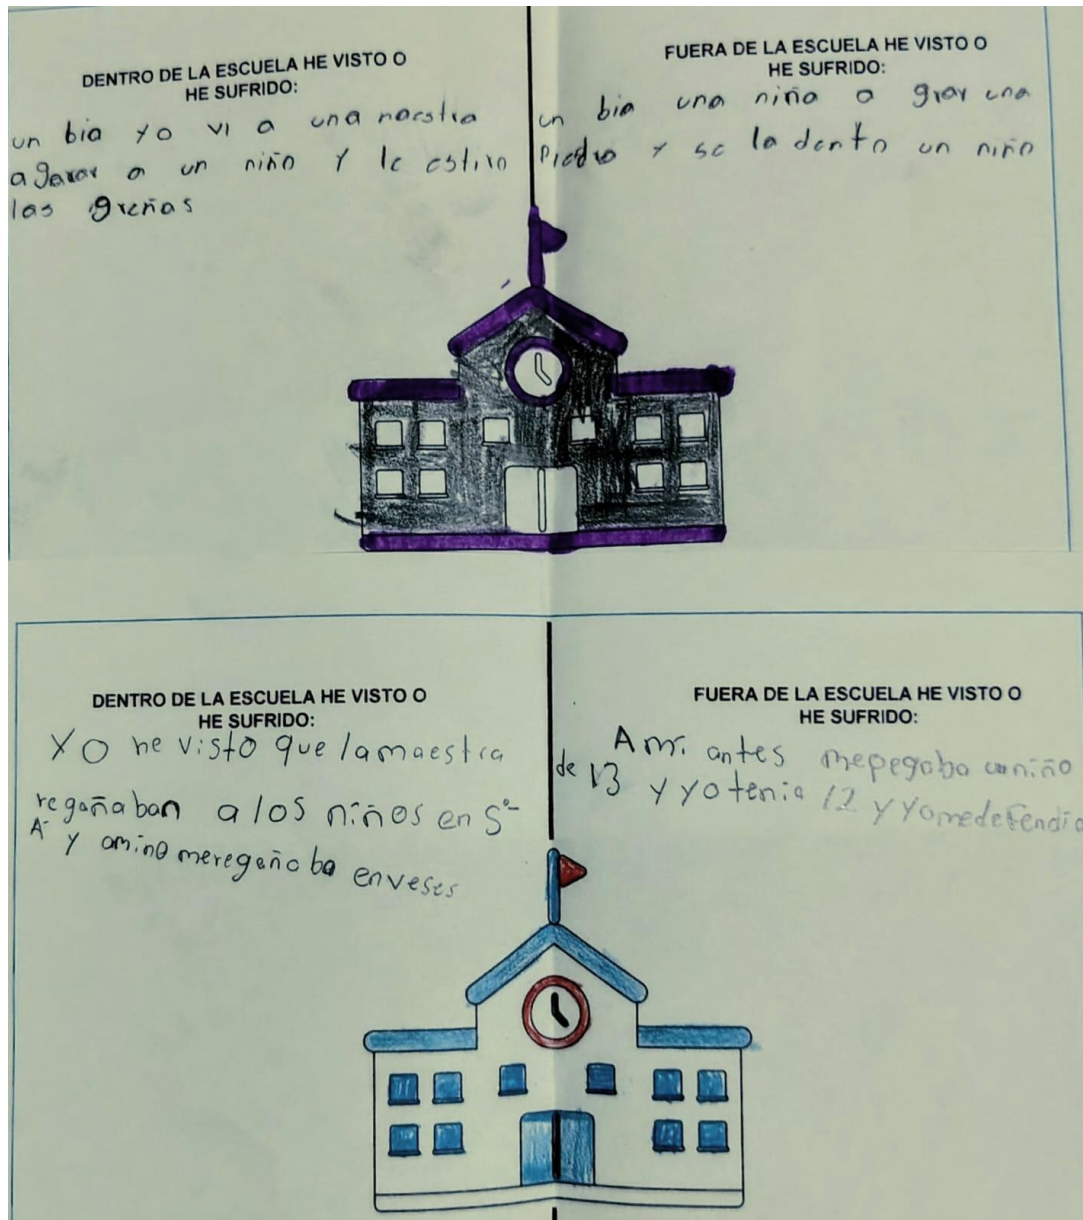 DENTRO DE LA ESCUELA HE VISTO O
HE SUFRIDO:
un bia yo vi a una naestra
agarar a un niño y le estiro
las greñas
FUERA DE LA ESCUELA HE VISTO O
HE SUFRIDO:
un bia una niña a grar una
Piedra y se la dento un niño
DENTRO DE LA ESCUELA HE VISTO O
HE SUFRIDO:
Yo he visto que lamaestra
regañaban a los niños en 5°
A- y amino meregañaba enveses
FUERA DE LA ESCUELA HE VISTO O
HE SUFRIDO:
Ami antes mepegaba uniño
de 13 y yo tenia 12 y yomedefendia